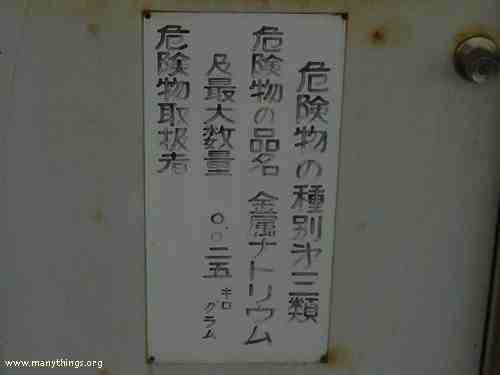 危険物の種別才三類
危険物の品名 金属ナトリウム
及最大数量 〇.〇二五キログラム
危険物取扱者
www.manythings.org